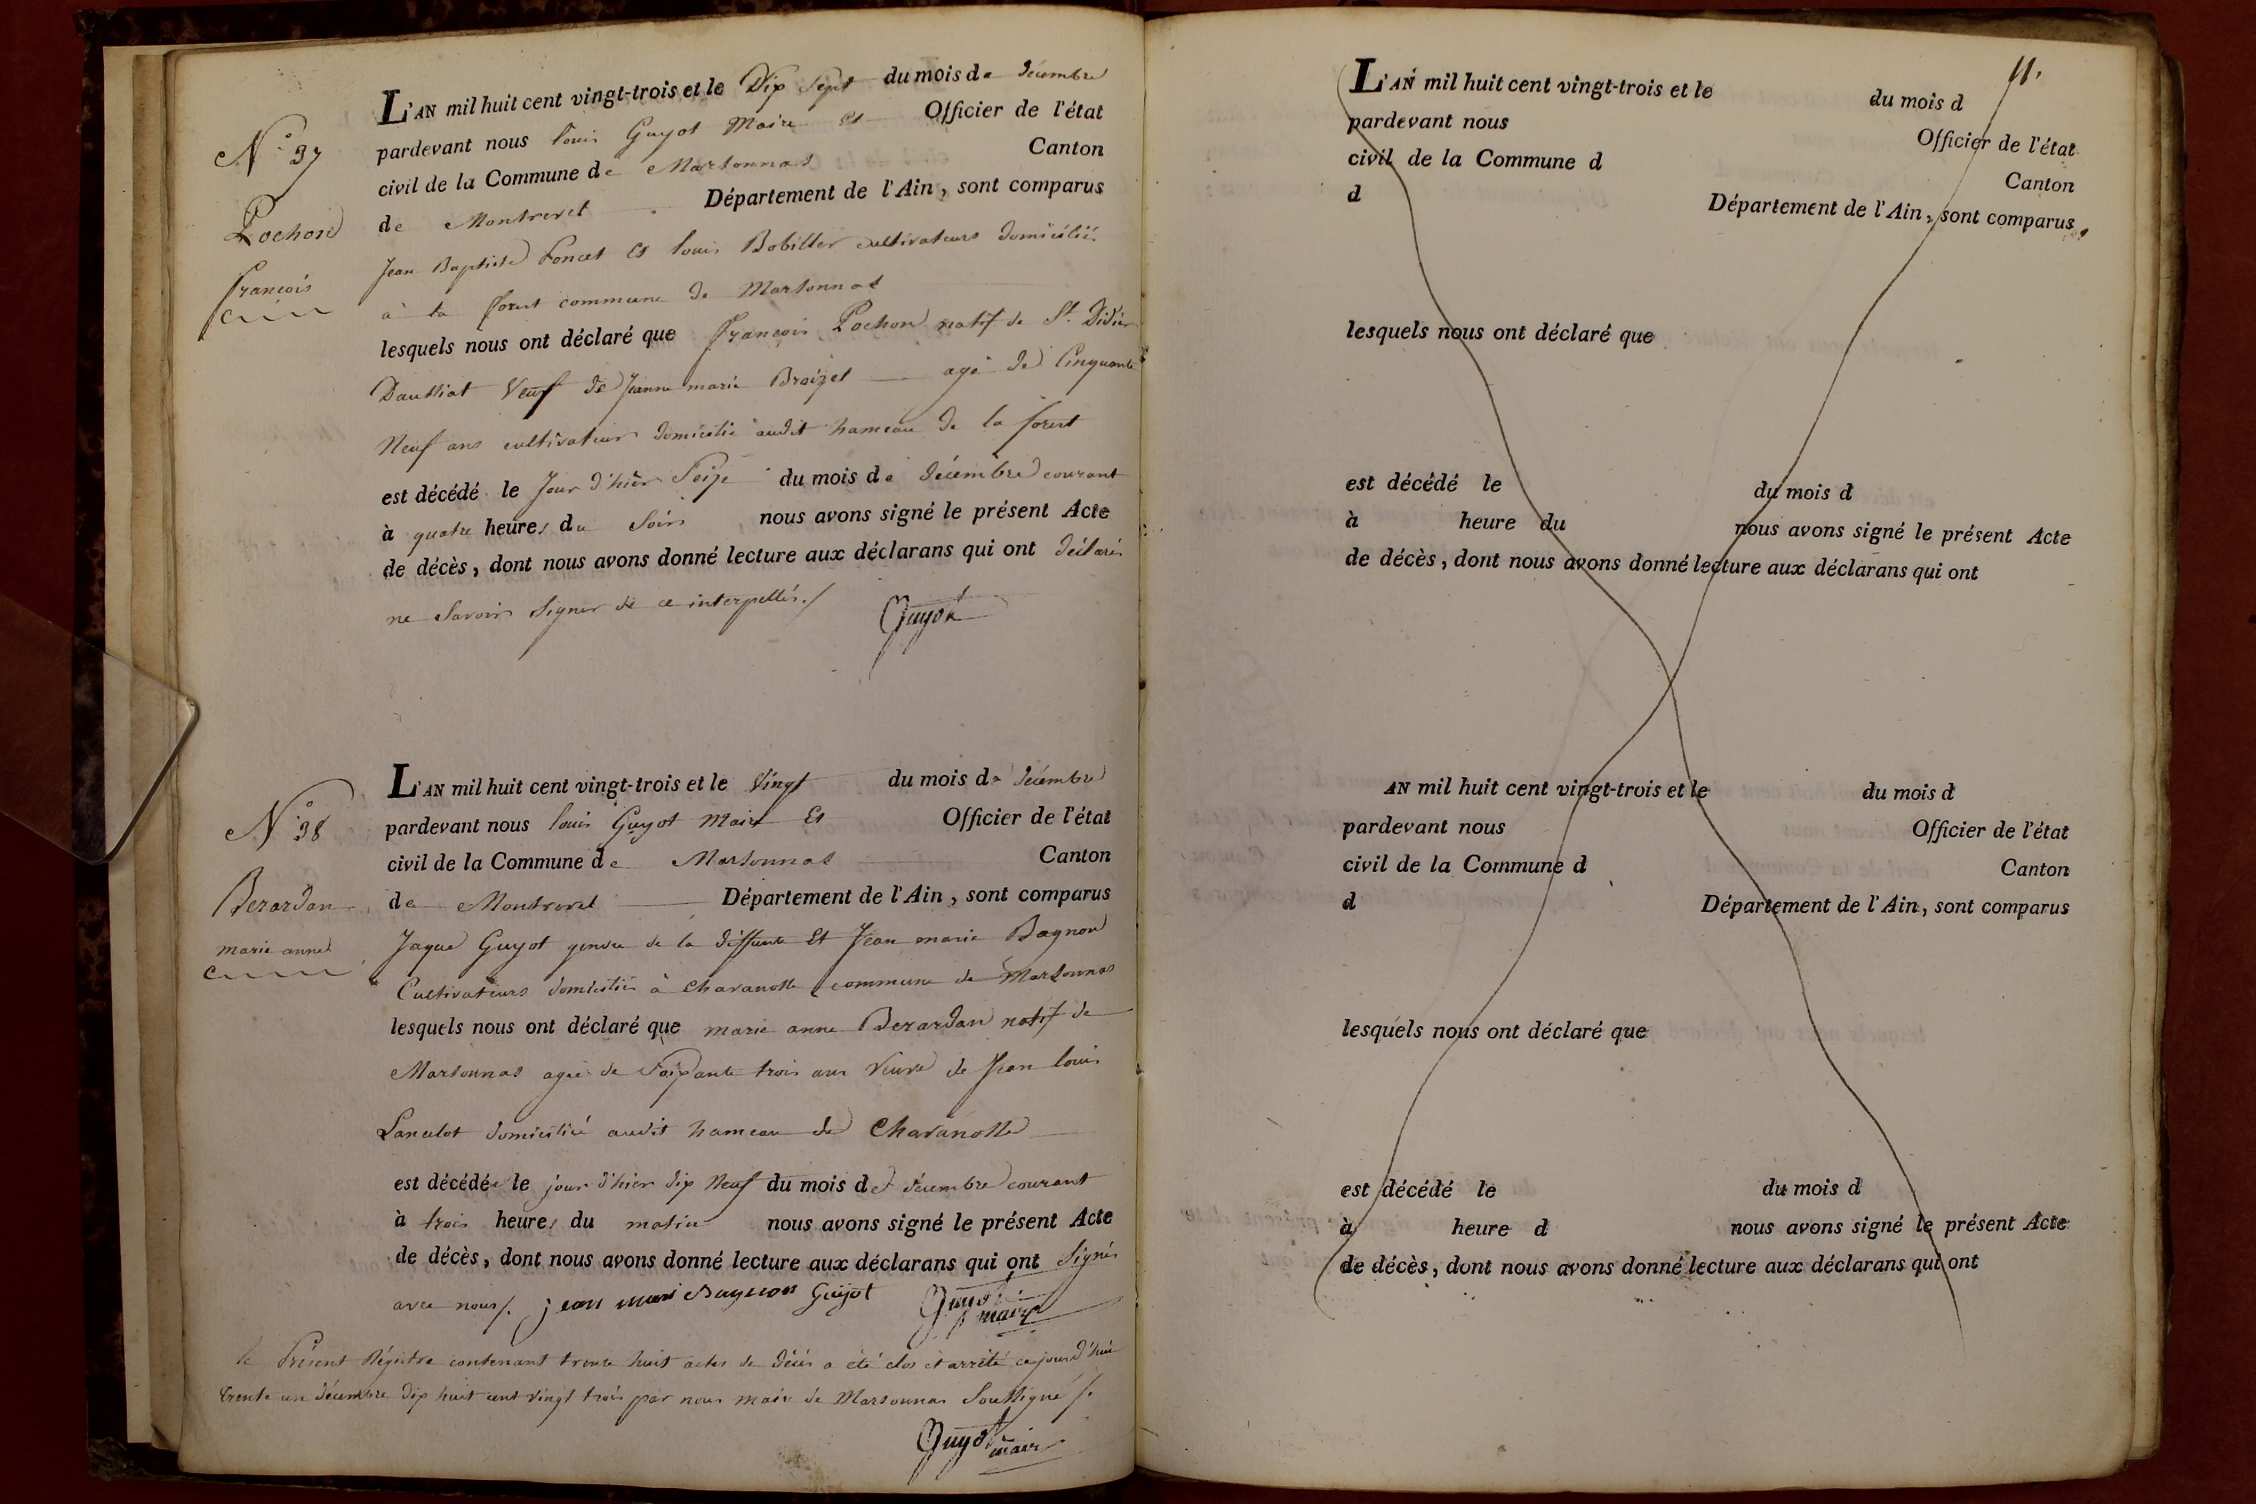 N.° 37
Pochon
françois
L'AN mil huit cent vingt-trois et le Dix Sept du mois de décembre
pardevant nous louis Guyot Maire Et Officier de l'état
civil de la Commune de Marsonnas Canton
de Montrevel Département de l'Ain, sont comparus
Jean Baptiste Poncet Et louis Bobillier cultivateurs domiciliés
à la forest commune de Marsonnas
lesquels nous ont déclaré que françois Pochon natif de St. Didier
Daussiat Veuf de Jeanne marie Broizet agé de Cinquante
Neuf ans cultivateur domicilié audit hameau de la forest
est décédé le Jour d'hier Seize du mois de décembre courant
à quatre heures du Soir nous avons signé le présent Acte
de décès, dont nous avons donné lecture aux déclarans qui ont déclarés
ne Savoir Signer de ce interpellés./ Guyot
N.° 38
Berardan
marie anne
L'AN mil huit cent vingt-trois et le Vingt du mois de décembre
pardevant nous louis Guyot Maire Et Officier de l'état
civil de la Commune de Marsonnas Canton
de Montrevel Département de l'Ain, sont comparus
Jaque Guyot gendre de la deffunte Et Jean marie Bagnon
Cultivateurs domiciliés à Chavanolle commune de Marsonnas
lesquels nous ont déclaré que marie anne Berardan natif de
Marsonnas agée de Soixante trois ans veuve de Jean louis
Lancelot domicilié audit hameau de Chavanolle
est décédée le jour d'hier dix Neuf du mois de décembre courant
à trois heures du matin nous avons signé le présent Acte
de décès, dont nous avons donné lecture aux déclarans qui ont Signés
avec nous/. jean mari Bagnon Guyot Guyot maire
le Présent Régistre contenant trente huit actes de décès a été clos et arrêté ce jourd'huy
trente un décembre dix huit cent vingt trois par nous maire de Marsonnas Soussigné /.
Guyot maire
11.
L'AN mil huit cent vingt-trois et le du mois d
pardevant nous Officier de l'état
civil de la Commune d Canton
d Département de l'Ain, sont comparus
lesquels nous ont déclaré que
est décédé le du mois d
à heure du nous avons signé le présent Acte
de décès, dont nous avons donné lecture aux déclarans qui ont
AN mil huit cent vingt-trois et le du mois d
pardevant nous Officier de l'état
civil de la Commune d Canton
d Département de l'Ain, sont comparus
lesquels nous ont déclaré que
est décédé le du mois d
à heure d nous avons signé le présent Acte
de décès, dont nous avons donné lecture aux déclarans qui ont